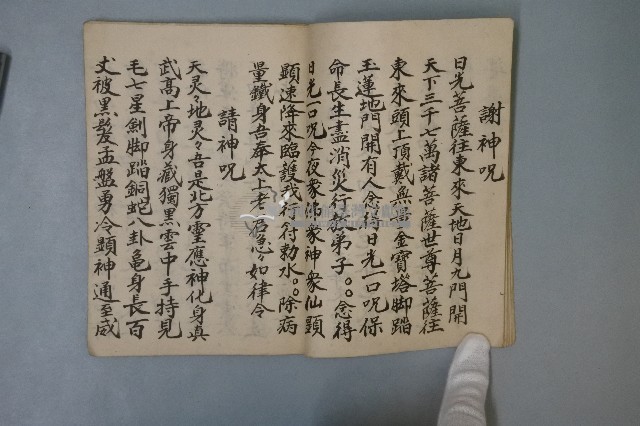 謝神咒
日光菩薩往東來天地日月九門開
天下三千七萬諸菩薩世尊菩薩往
東來頭上頂戴無
金寶塔脚踏
玉蓮地門開有人念得日光一口咒保
命長生盡消災行
弟子〇〇念得
日光一口咒今夜衆
衆神衆仙顕
顕速降來臨護我行符勅水〇〇除病
量鐵身吾奉太上老君急々如律令
請神咒
天灵々地灵々吾是北方灵應神化身真
武高上帝身藏獨黑雲中手持見
毛七星劍脚踏銅蛇八卦亀身長百
丈被黑髮
盤勇冷顕神通至咸